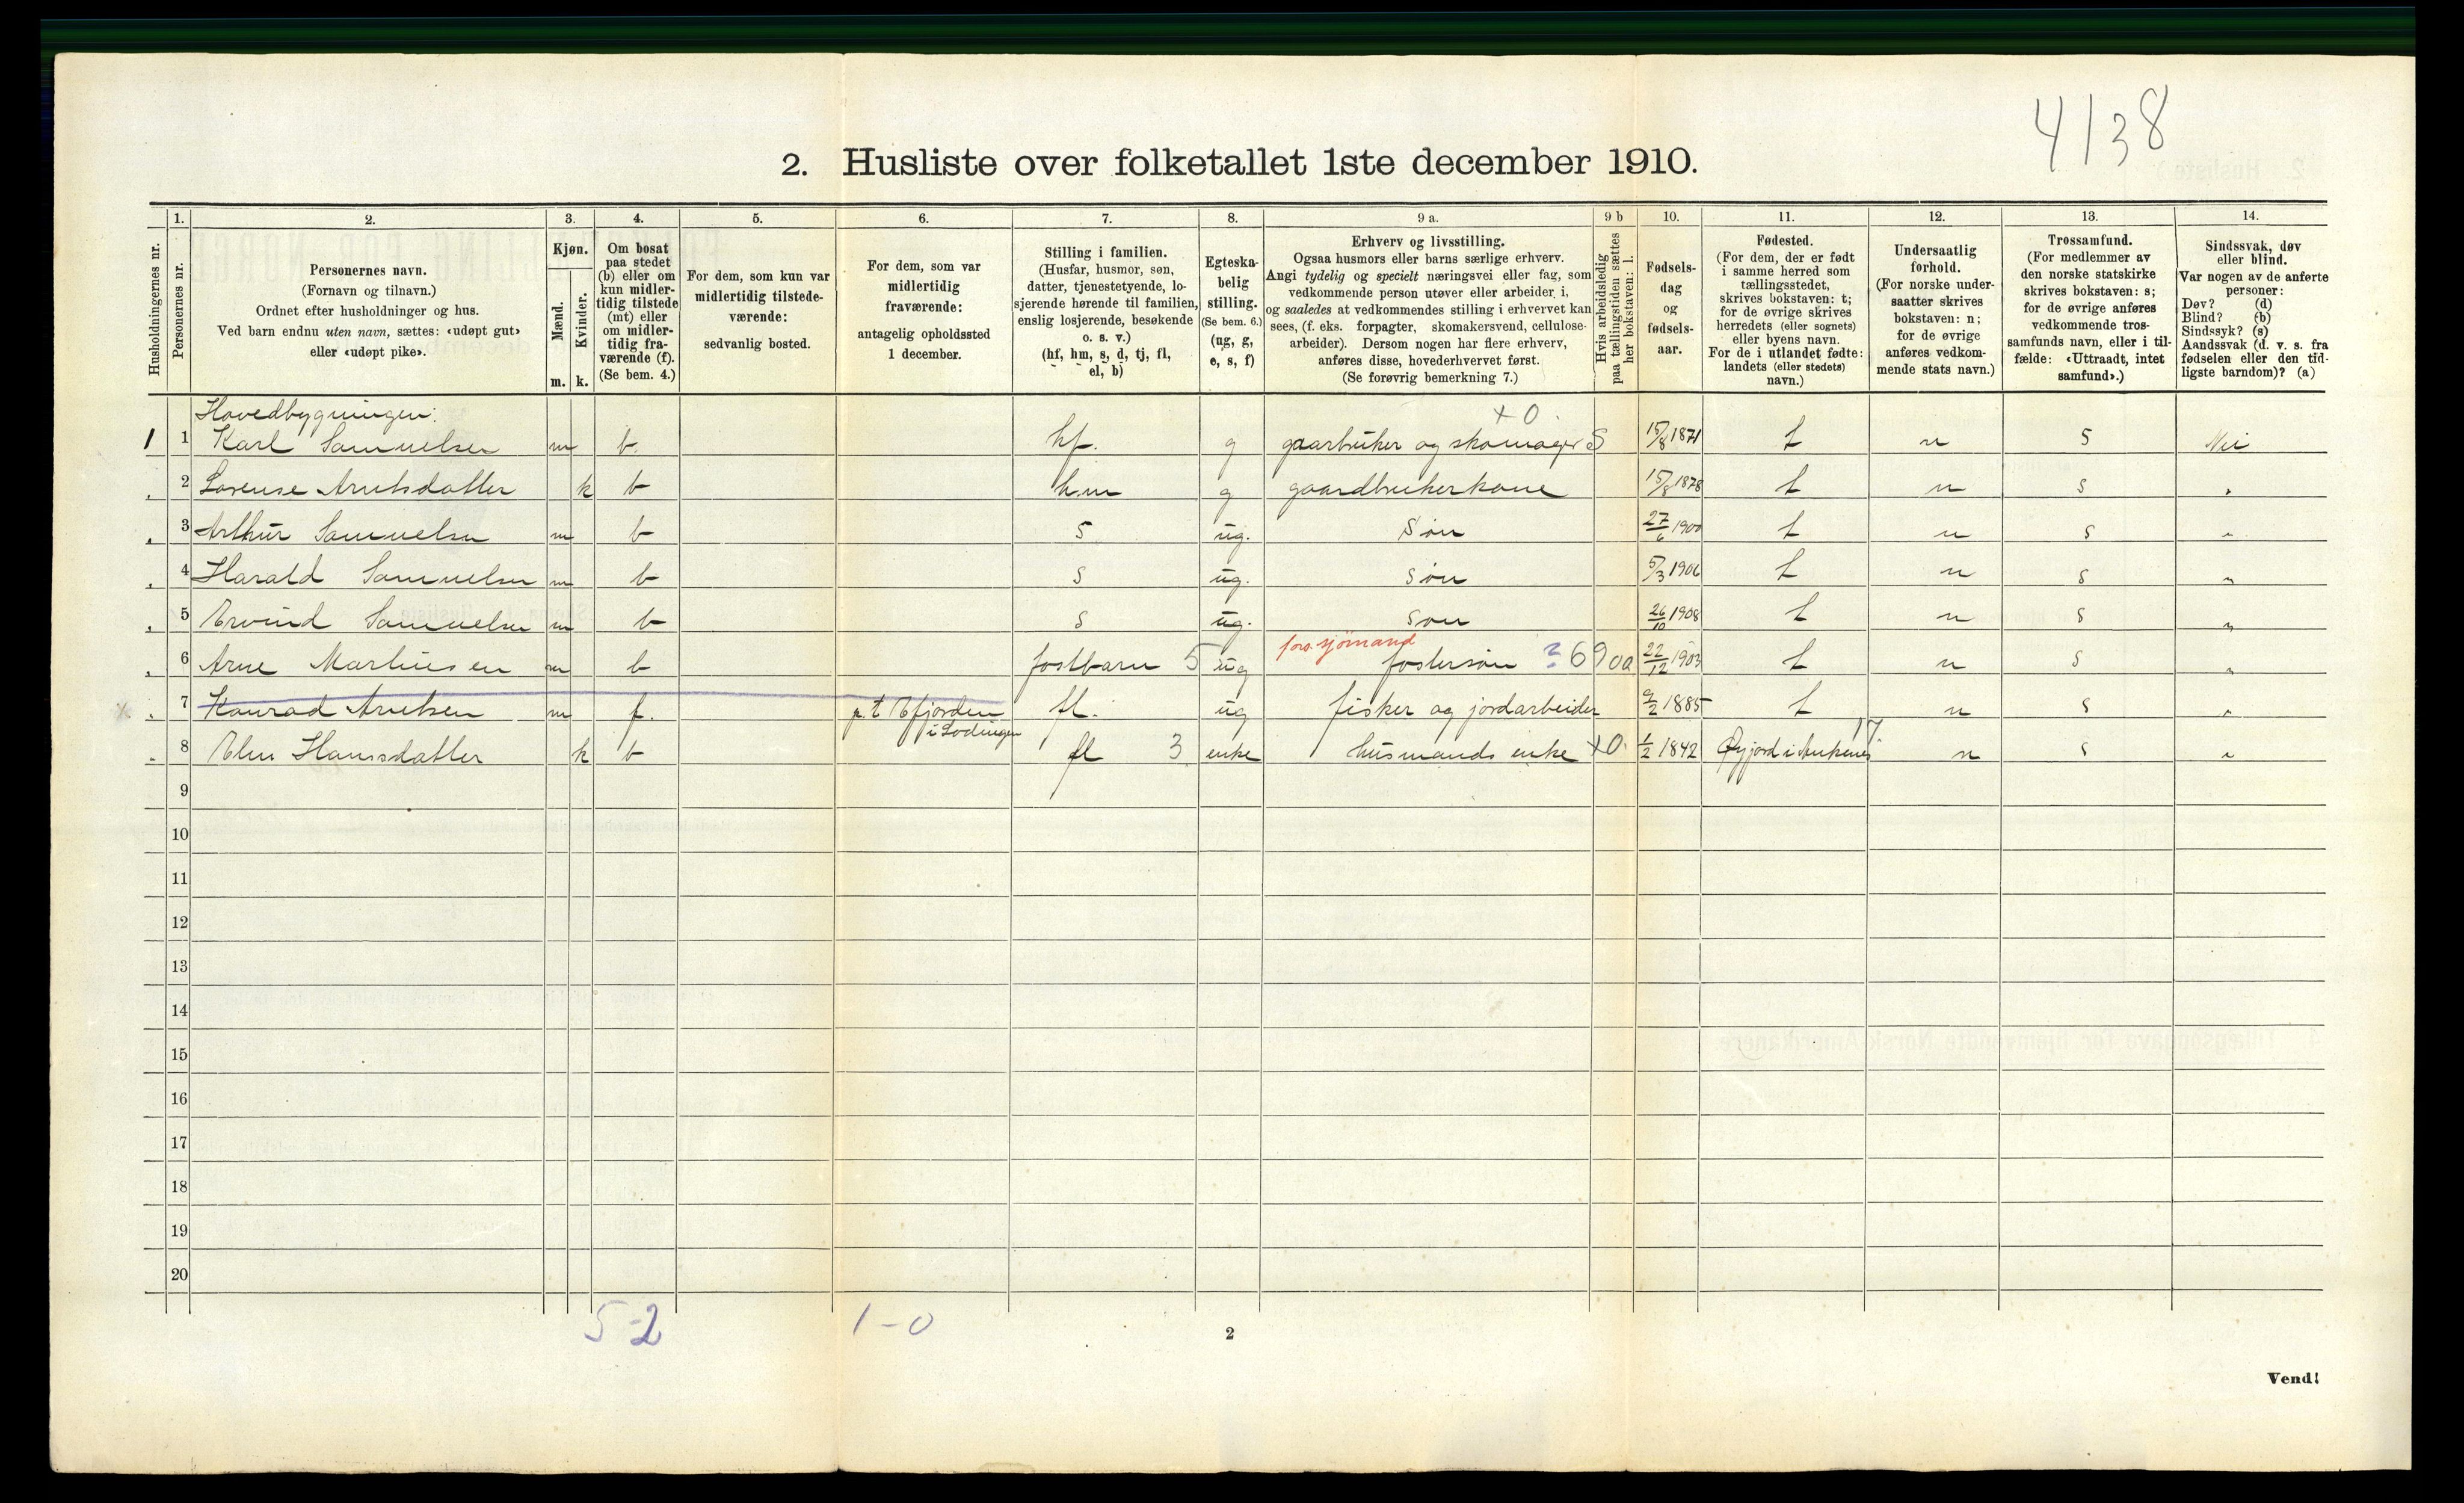 4138
2. Husliste over folketallet 1ste december 1910.
Husholdningernes nr.
1.
Personernes nr.
2.
Personernes navn.
(Fornavn og tilnavn.)
Ordnet efter husholdninger og hus.
Ved barn endnu uten navn, sættes: «udøpt gut»
eller «udøpt pike».
3.
Kjøn.
Mænd.
Kvinder.
m. k.
4.
Om bosat
paa stedet
(b) eller om
kun midler-
tidig tilstede
(mt) eller
om midler-
tidig fra-
værende (f).
(Se bem. 4.)
5.
For dem, som kun var
midlertidig tilstede-
værende:
sedvanlig bosted.
6.
For dem, som var
midlertidig
fraværende:
antagelig opholdssted
1 december.
7.
Stilling i familien.
(Husfar, husmor, søn,
datter, tjenestetyende, lo-
sjerende hørende til familien,
enslig losjerende, besøkende
o. s. v.)
(hf, hm, s, d, tj, fl,
el, b)
8.
Egteska-
belig
stilling.
(Se bem. 6.)
(ug, g,
e, s, f)
9 a.
Erhverv og livsstilling.
Ogsaa husmors eller barns særlige erhverv.
Angi tydelig og specielt næringsvei eller fag, som
vedkommende person utøver eller arbeider i,
og saaledes at vedkommendes stilling i erhvervet kan
sees, (f. eks. forpagter, skomakersvend, cellulose-
arbeider). Dersom nogen har flere erhverv,
anføres disse, hovederhvervet først.
(Se forøvrig bemerkning 7.)
9 b
Hvis arbeidsledig
paa tællingstiden sættes
her bokstaven: l.
10.
Fødsels-
dag
og
fødsels-
aar.
11.
Fødested.
(For dem, der er født
i samme herred som
tællingsstedet,
skrives bokstaven: t;
for de øvrige skrives
herredets (eller sognets)
eller byens navn.
For de i utlandet fødte:
landets (eller stedets)
navn.)
12.
Undersaatlig
forhold.
(For norske under-
saatter skrives
bokstaven: n;
for de øvrige
anføres vedkom-
mende stats navn.)
13.
Trossamfund.
(For medlemmer av
den norske statskirke
skrives bokstaven: s;
for de øvrige anføres
vedkommende tros-
samfunds navn, eller i til-
fælde: «Uttraadt, intet
samfund».)
14.
Sindssvak, døv
eller blind.
Var nogen av de anførte
personer:
Døv? (d)
Blind? (b)
Sindssyk? (s)
Aandssvak (d. v. s. fra
fødselen eller den tid-
ligste barndom)? (a)
Hovedbygningen: +0.
1 1 Karl Samuelsen m b. hf. g gaarbruker og skomager S 15/8 1871 t n s Nei
" 2 Lorense Arntsdatter k b hm g gaardbrukerkone 15/8 1878 t n s "
" 3 Arthur Samuelsen m b s ug. Søn 27/6 1900 t n s "
" 4 Harald Samuelsen m b s ug. søn 5/3 1906 t n s "
" 5 Eivind Samuelsen m b s ug. søn 26/10 1908 t n s "
fors. sjømand
" 6 Arne Martinsen m b fostbarn 5 ug fostersøn ? 6900 22/12 1903 t n s "
" 7 Konrad Arntsen m f. p. t Efjorden fl. ug fisker og jordarbeider 9/2 1885 t n s "
i Lødingen 17
" 8 Elen Hansdatter k b fl 3 enke husmands enke +0. 1/2 1842 Øyjord i Ankenes n s "
9
10
11
12
13
14
15
16
17
18
19
20
5-2 1-0
2
Vend!